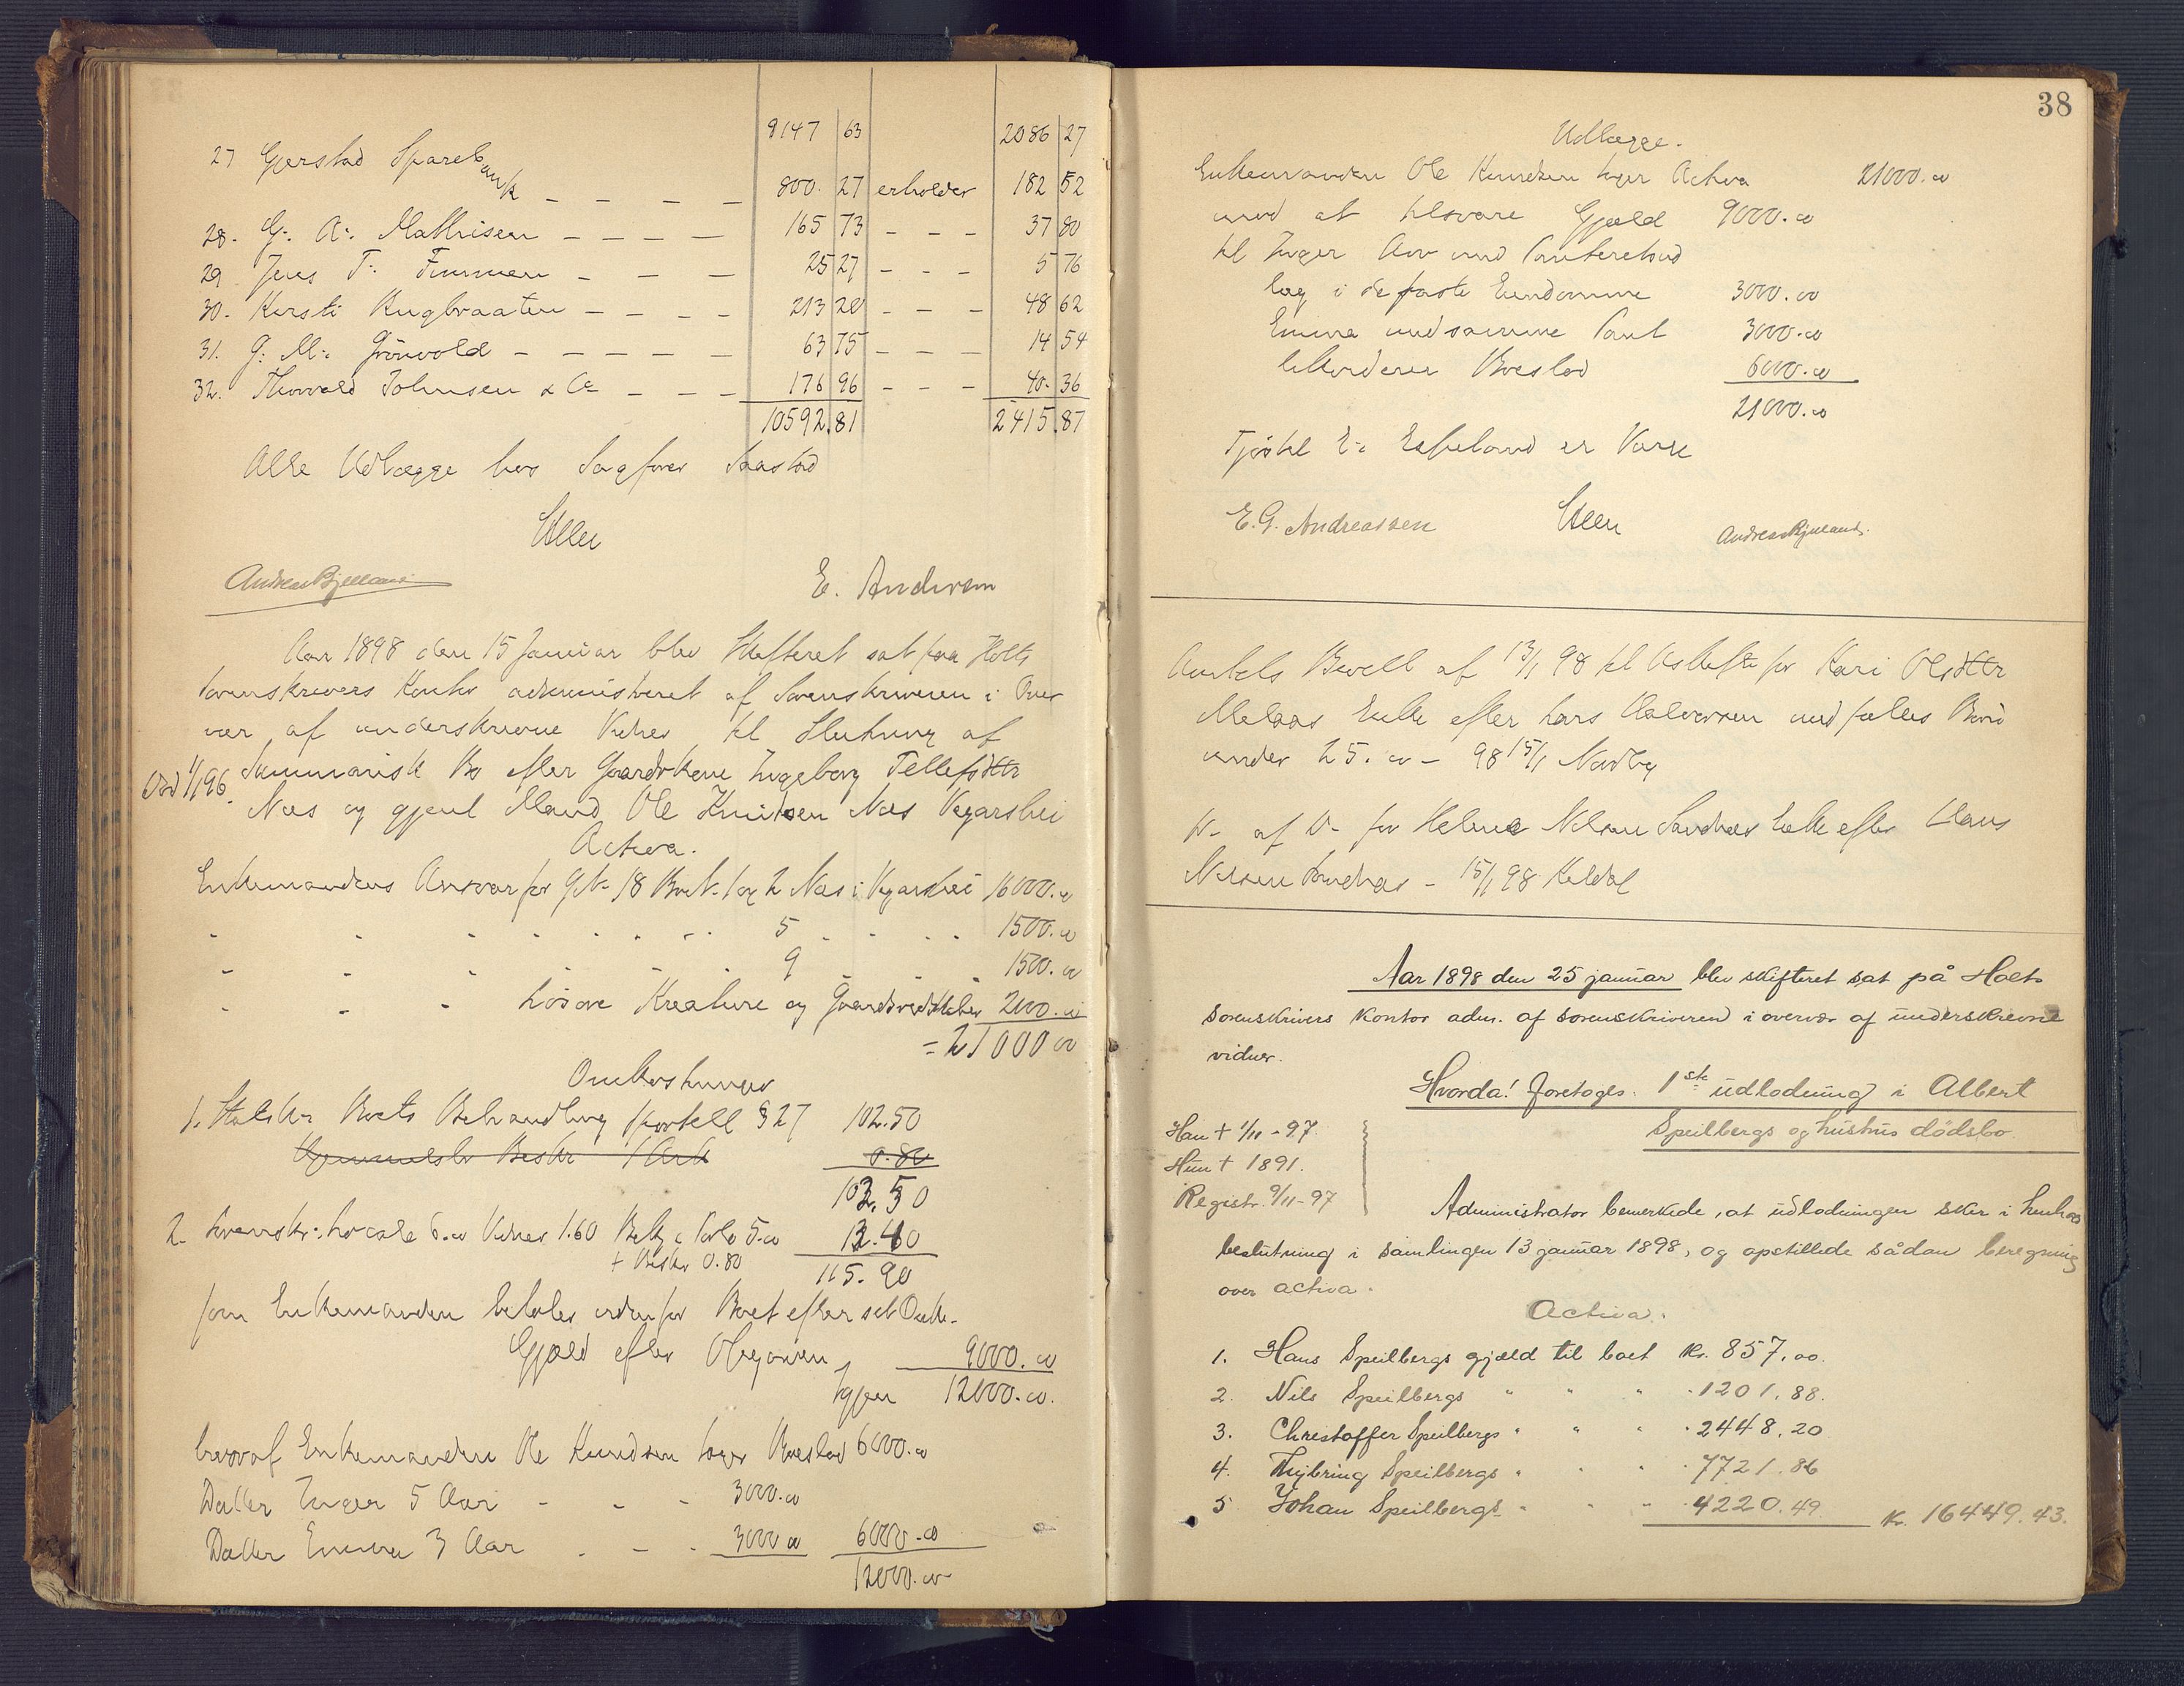 9147 63 2086 27
27 Gjerstad Sparebank – – – – 800. 27 erholder 182 52
28. G. A. Mathisen – – – – 165 73 – – – 37 80
29 Jens T. Finmen – – – 25 27 – – – 5 76
30. Kirsti Rugbraaten – – – – 213 20 – – – 48 62
31. G. M. Grönvold – – – – – 63 75 – – – 14 54
32. Thorvald Johnsen & Co – – – 176 96 – – – 40. 36
10592.81 2415.87
Alle Udlægge hos Sagfører Saastad
E. Andersen
Aar 1898 den 15 Januar blev Skifteret sat paa Holts
Sorenskrivers Kontor administreret af Sorenskriveren i Over
vær af underskrevne Vidner til Slutning af
Død 1/1 96. Summarisk Bo efter Gaardskone Ingeborg Tellefsdttr
Næs og gjenl Mand Ole Knudsen Næs Vegarshei
Activa.
Enkemandens Ansvar for G.N. 18 Br.N. 1 og 2 Næs i Vegarshei 16000.00
" " " " " " " 5 " " " " 1500.00
" " " " " " 9 " " " 1500.00
" " " Løsøre Kreature og Gaardsredskaber 2000.00
= 21000 00
Omkostninger
1. Statsk. Boets Behandling Sportell § 27 102.50
Hjemmelsbr Beskr 1 Ark 0.80
102.50
2. Sorenskr. Locale 6.00 Vidner 1.60 Bekj & Porto 5.00 13.40
+ Beskr 0.80 115.90
som Enkemanden betaler udenfor Boet efter sit Onske.
Gjæld efter Opgaven 9000.00
Igjen 12000.00.
hvoraf Enkemanden Ole Knudsen tager Boeslod 6000.00
Datter Inger 5 Aar – – – 3000.00
Datter Emma 3 Aar . – . 3000 00 6000.00
12000.00
38
Udlægge.
Enkemanden Ole Knudsen tager Activa 21000.00
mod at tilsvare Gjæld 9000.00
til Inger Arv med Panteret ved
læg i de faste Eiendomme 3000.00
Emma med samme Pant 3000.00
beholdende Boeslod 6000.00
21000.00
Tjøstel E. Espeland er Værge
E. G. Andreassen Andreas Bjelland.
Amtets Bevill af 13/1 98 til Uskiftet for Kari Olsdttr
Melaas Enke efter Lars Halvorsen med fælles Børn
under 25. 00 – 98 15/1 Nordby
D. af D. for Helene Nilsen Sandnes Enke efter Claus
Nilsen Sandnes – 15/1 98 Keldal
Aar 1898 den 25 januar blev skifteret sat på Holts
sorenskrivers kontor adm. af sorenskriveren i overvær af underskrevne
vidner.
Hvorda! foretoges: 1ste udlodning i Albert
Speilbergs og hustrus dødsbo.
Han † 1/11 - 97.
Hun † 1891.
Registr. 9/11 - 97
Administrator bemerkede, at udlodningen sker i henhold
beslutning i samlingen 13 januar 1898, og opstillede sådan beregning
over activa.
Activa.
1. Hans Speilbergs gjæld til boet Kr. 857,00.
2. Nils Speilbergs " " " . 1201.88.
3. Christoffer Speilbergs " " " . 2448.20
4. Thybring Speilbergs " " " . 7721.86
5 Johan Speilbergs " " " . 4220.49. Kr. 16449.43.